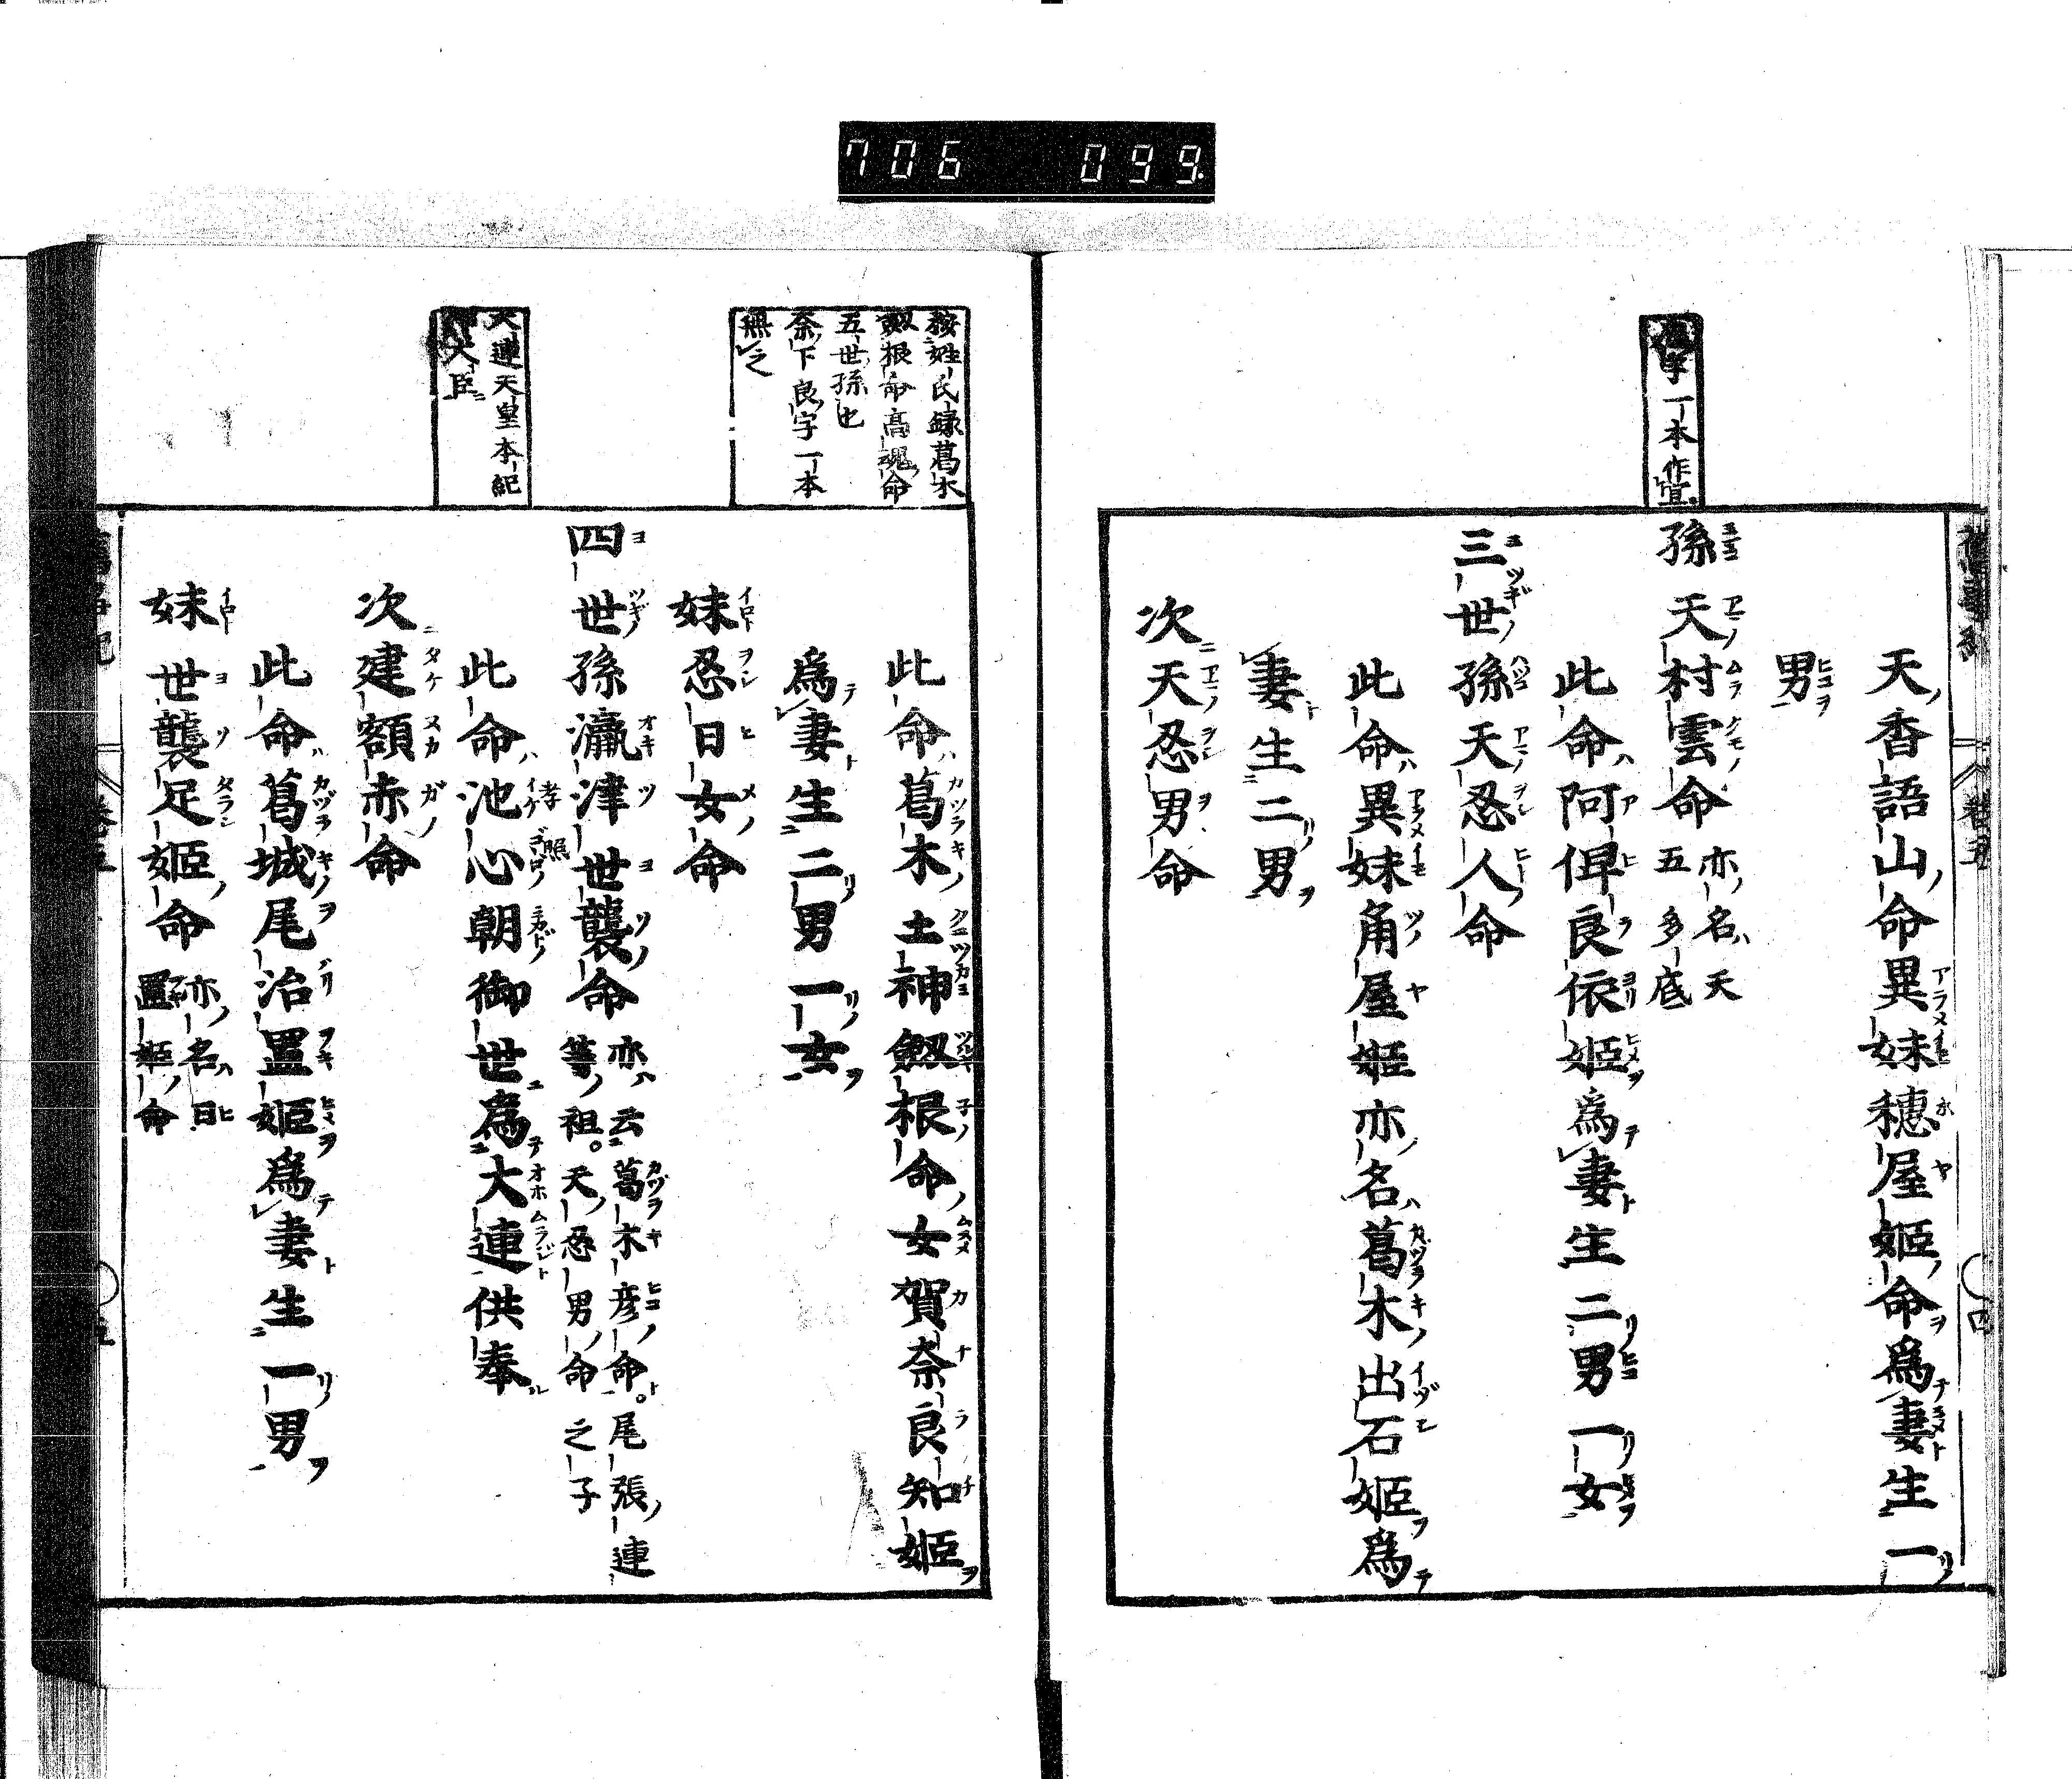 706 099
字一本作宜
天香語山命異妹穗屋姫命爲妻生一
男
孫天村雲命亦名天五多底
此命阿俾良依姫爲妻生二男一女
三世孫天忍人命
此命異妹角屋姫亦名葛木出石姫爲
妻生二男
次天忍男命
按姓氏録葛木
劔根命高魂命
五世孫也
奈下良字一本
無之
大連天皇本紀
大臣
此命葛木土神劔根命女賀奈良知姫
爲妻生二男一女
妹忍日女命
四世孫瀛津世襲命亦云葛木彦命。尾張連等祖。天忍男命之子
此命池心朝御世爲大連供奉
孝照
次建額赤命
此命葛城尾治置姫爲妻生一男
妹世襲足姫命亦名日置姫命